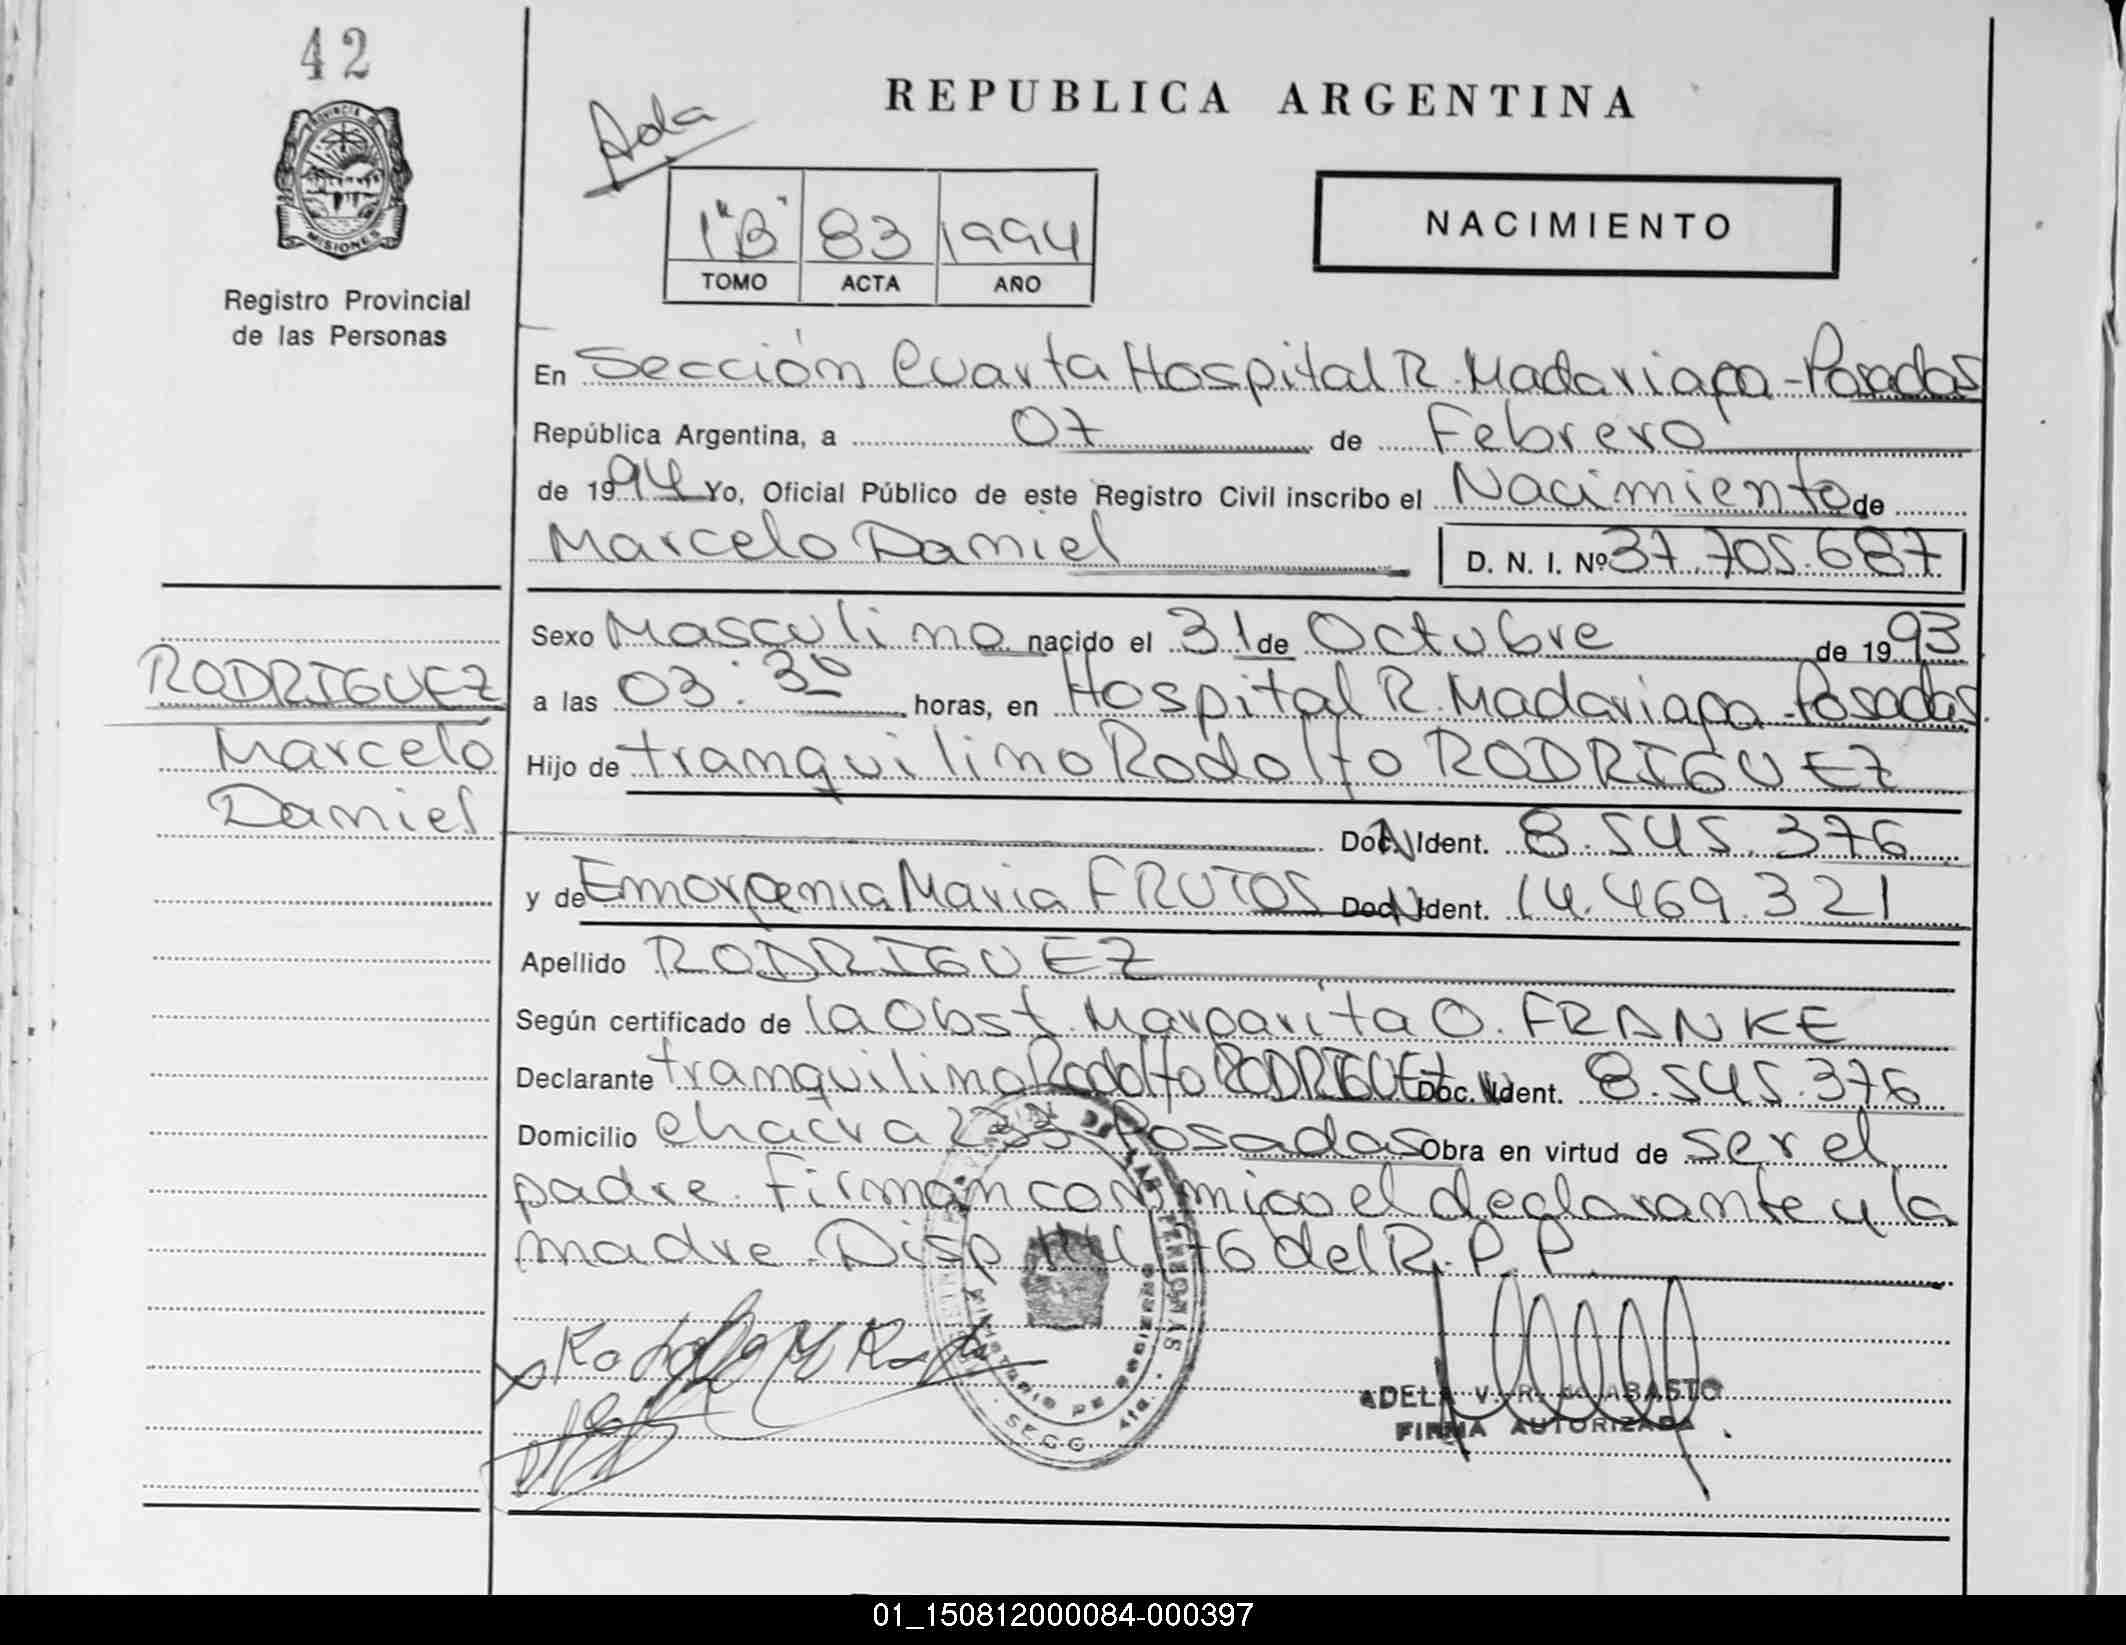 42
PROVINCIA DE
MISIONES
Registro Provincial
de las Personas
RODRIGUEZ
Marcelo
Daniel
REPUBLICA ARGENTINA
Ada
1 "B" 83 1994
TOMO ACTA AÑO
NACIMIENTO
En Sección Cuarta Hospital R. Madariaga - Posadas
República Argentina, a 07 de Febrero
de 1994 Yo, Oficial Público de este Registro Civil inscribo el Nacimiento de
Marcelo Daniel D. N. I. Nº 37.705.687
Sexo Masculino nacido el 31 de Octubre de 1993
a las 03:30 horas, en Hospital R. Madariaga - Posadas
Hijo de tranquilino Rodolfo RODRIGUEZ
Doc. Ident. 8.545.376
y de Emorgenia Maria FRUTOS Doc. Ident. 14.469.321
Apellido RODRIGUEZ
Según certificado de la Obst. Margarita O. FRANKE
Declarante tranquilino Rodolfo RODRIGUEZ Doc. Ident. 8.545.376
Domicilio chacra 233 Posadas Obra en virtud de ser el
padre. Firman conmigo el declarante y la
madre. Disp 114/76 del R.P.P.
DE LAS PERSONAS
MINISTERIO DE GOBIERNO
SECC 4ta.
ADELA V. R. de ABASTO
FIRMA AUTORIZADA
01_150812000084-000397